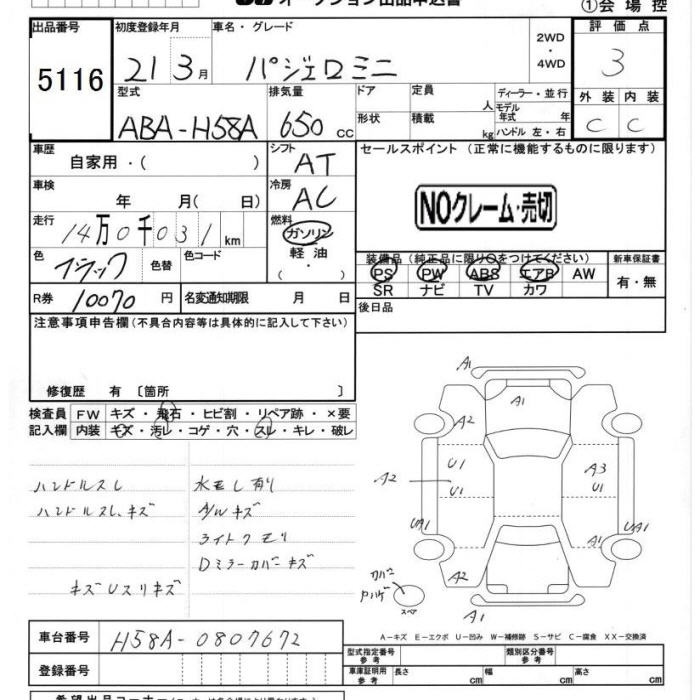 オークション出品申込書
①会場控
出品番号
5116
初度登録年月
21 3月
車名・グレード
パジェロミニ
2WD
・
4WD
評価点
3
型式
ABA-H58A
排気量
650 cc
ドア
定員
人
形状
積載
kg
ディーラー・並行
モデル年式 年
ハンドル 左・右
外装 内装
C C
車歴
自家用・( )
シフト
AT
セールスポイント (正常に機能するものに限ります)
NOクレーム・売切
車検
年 月( 日)
冷房
AC
走行
14万0千031 km
燃料
ガソリン
軽油
・
( )
色
ブラック
色替
色コード
装備品(純正品に限り○をつけてください)
PS PW ABS エアB AW
SR ナビ TV カワ
新車保証書
有・無
R券 10070円
名変通知期限 月 日
後日品
注意事項申告欄(不具合内容等は具体的に記入して下さい)
修復歴 有 〔箇所 〕
検査員記入欄
FW キズ・飛石・ヒビ割・リペア跡・×要
内装 キズ・汚レ・コゲ・穴・スレ・キレ・破レ
ハンドルスレ
ハンドルスレ、キズ
キズUスリキズ
水モレ有り
A/Wキズ
ライトクモリ
Dミラーカバーキズ
A1
A1
A2
U1
U1
A2
A3
U1
UA1
UA1
A1
A2
A1
カバー
スペア
A-キズ E-エクボ U-凹み W-補修跡 S-サビ C-腐食 XX-交換済
車台番号 H58A-0807672
登録番号
型式指定番号 参考
類別区分番号 参考
車庫証明用 参考
長さ cm
幅 cm
高さ cm